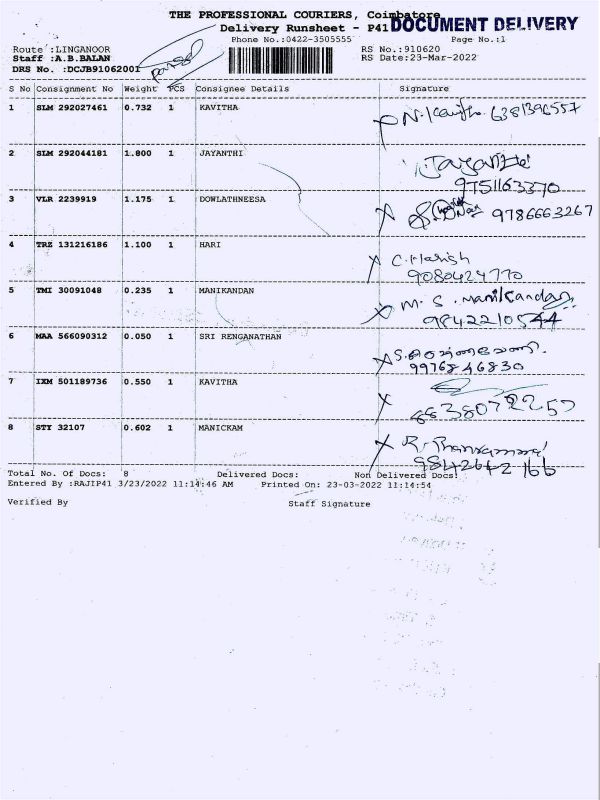 THE PROFESSIONAL COURIERS, Coimbatore
Delivery Runsheet - P41 DOCUMENT DELIVERY
Phone No.:0422-3505555 Page No.:1
Route :LINGANOOR RS No.:910620
Staff :A.B.BALAN RS Date:23-Mar-2022
DRS No. :DCJB91062001
S No Consignment No Weight PCS Consignee Details Signature
1 SLM 292027461 0.732 1 KAVITHA N. Kavitha 6381396557
2 SLM 292044181 1.800 1 JAYANTHI Jayanthi
9751163370
3 VLR 2239919 1.175 1 DOWLATHNEESA 9786663267
4 TRZ 131216186 1.100 1 HARI C. Harish
9080424770
5 TMI 30091048 0.235 1 MANIKANDAN M. S. Manikandan
9842210544
6 MAA 566090312 0.050 1 SRI RENGANATHAN
9976846830
7 IXM 501189736 0.550 1 KAVITHA
8 STY 32107 0.602 1 MANICKAM
Total No. Of Docs: 8 Delivered Docs: Non Delivered Docs:
Entered By :RAJIP41 3/23/2022 11:14:46 AM Printed On: 23-03-2022 11:14:54
Verified By Staff Signature